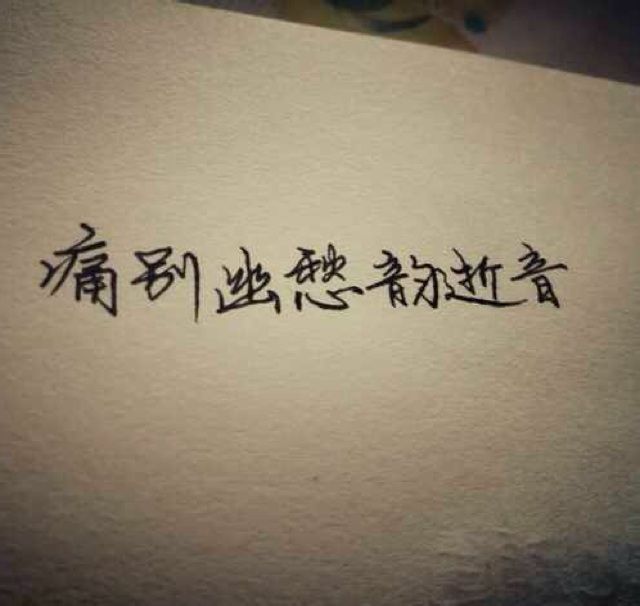 痛别幽愁韵逝音